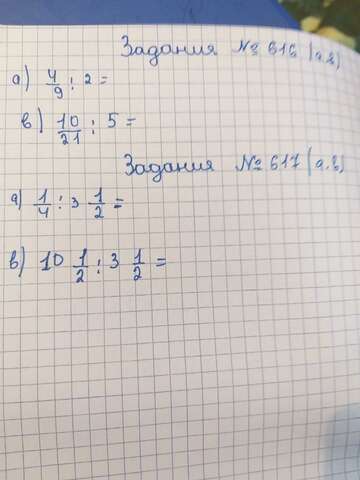 Задания № 616 (а.в)
а) 4/9 : 2 =
в) 10/21 : 5 =
Задания № 617 (а.в)
а) 1/4 : 3 1/2 =
в) 10 1/2 : 3 1/2 =